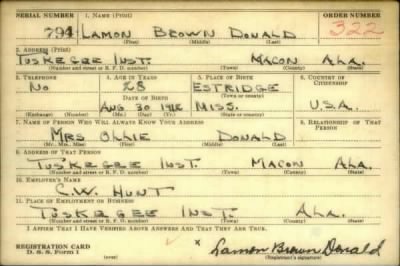 SERIAL NUMBER 1. NAME (Print) ORDER NUMBER
794 LAMON BROWN DONALD 322
(First) (Middle) (Last)
2. ADDRESS (Print)
TUSKEGEE INST. MACON ALA.
(Number and street or R. F. D. number) (Town) (County) (State)
3. TELEPHONE 4. AGE IN YEARS 5. PLACE OF BIRTH 6. COUNTRY OF CITIZENSHIP
No 28 ESTRIDGE
DATE OF BIRTH (Town or county)
AUG 30 1912 MISS. U.S.A.
(Exchange) (Number) (Mo.) (Day) (Yr.) (State or country)
7. NAME OF PERSON WHO WILL ALWAYS KNOW YOUR ADDRESS 8. RELATIONSHIP OF THAT PERSON
MRS OLLIE DONALD
(Mr., Mrs., Miss) (First) (Middle) (Last)
9. ADDRESS OF THAT PERSON
TUSKEGEE INST. MACON ALA.
(Number and street or R. F. D. number) (Town) (County) (State)
10. EMPLOYER'S NAME
C.W. HUNT
11. PLACE OF EMPLOYMENT OR BUSINESS
TUSKEGEE INST. ALA.
(Number and street or R. F. D. number) (Town) (County) (State)
I AFFIRM THAT I HAVE VERIFIED ABOVE ANSWERS AND THAT THEY ARE TRUE.
REGISTRATION CARD x Lamon Brown Donald
D. S. S. Form 1 (over) (Registrant's signature)